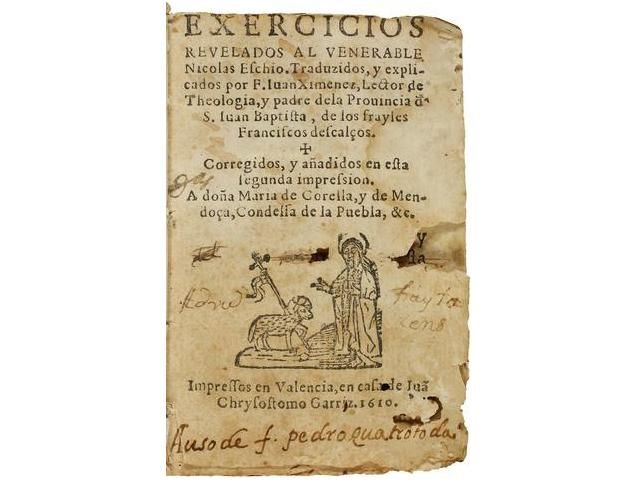 EXERCICIOS
REVELADOS AL VENERABLE
Nicolas Eſchio. Traduzidos, y expli-
cados por F. Iuan Ximenez, Lector de
Theologia, y padre dela Prouincia d̃
S. Iuan Baptiſta, de los frayles
Franciſcos deſcalços.
✠
Corregidos, y añadidos en eſta
ſegunda impreſsion.
A doña Maria de Corella, y de Men-
doça, Condeſſa de la Puebla, &c.
y
da
fray
Impreſſos en Valencia, en caſa de Iuã
Chryſoſtomo Garriz. 1610.
Auso de f. pedro